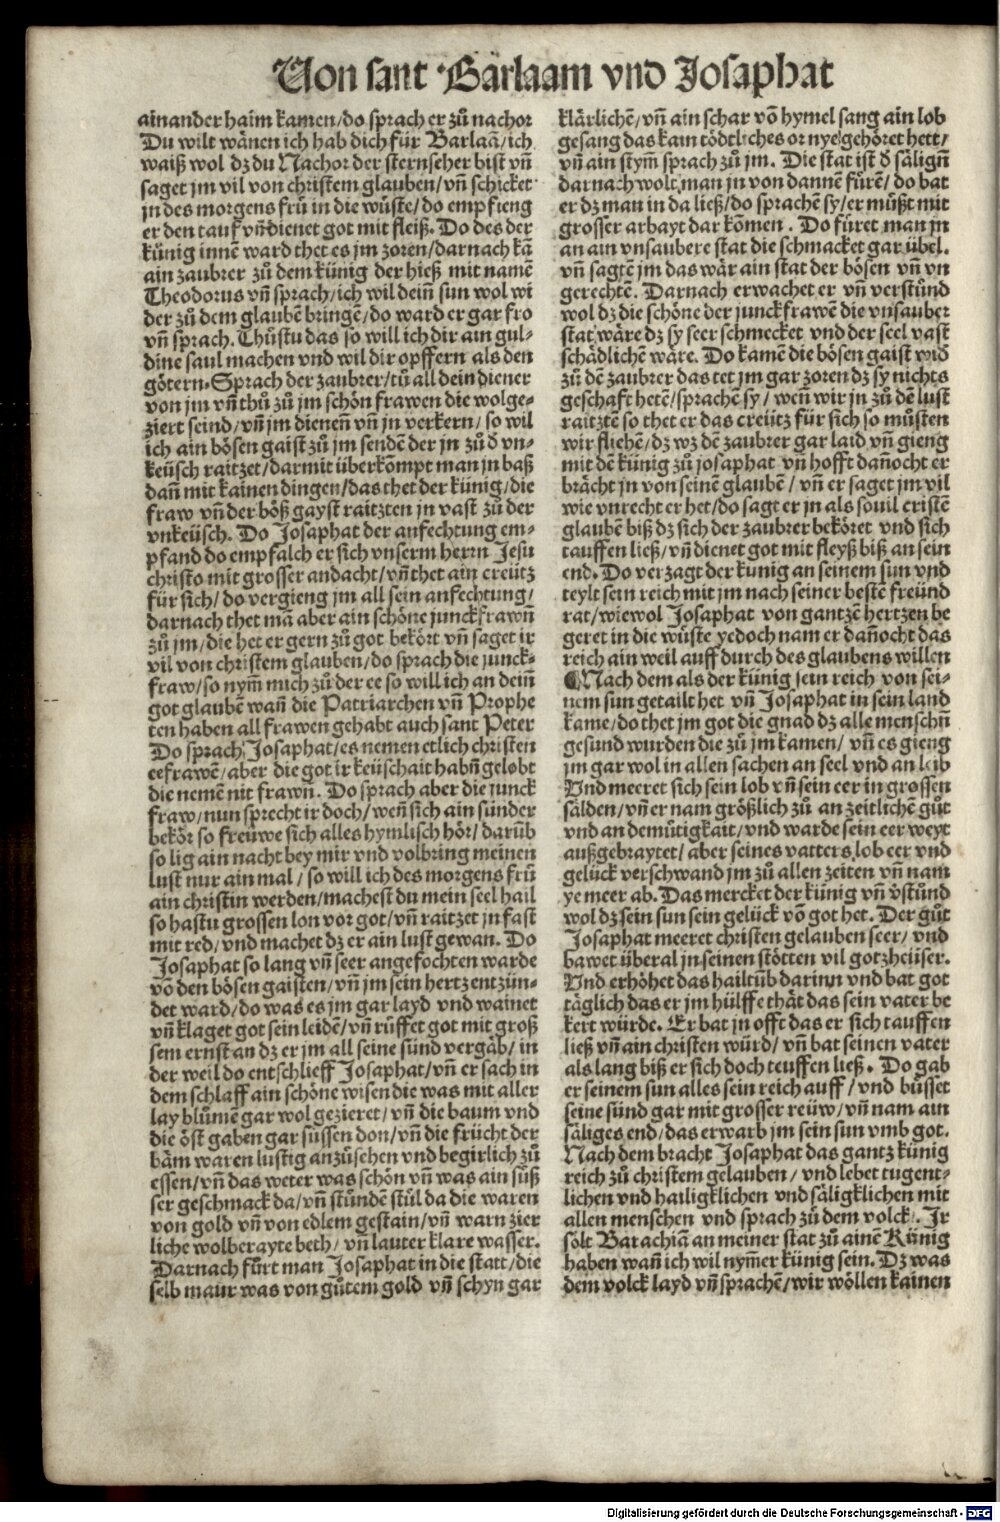 Von sant Bärlaam vnd Josaphat
ainander haim kamen/do sprach er zů nachor
Du wilt wänen ich hab dich für Barlaā/ich
waiß wol dz du Nachor der sternseher bist vn̄
saget jm vil von christem glauben/vn̄ schicket
jn des morgens frů in die wůste/do empfieng
er den tauf vn̄ dienet got mit fleiß. Do des der
künig innē ward thet es jm zoren/darnach kā
ain zaubrer zů dem künig der hieß mit namē
Theodorus vn̄ sprach/ich wil dein̄ sun wol wi
der zů dem glaubē bringē/do ward er gar fro
vn̄ sprach. Thůstu das so will ich dir ain gul-
dine saul machen vnd wil dir opffern als den
götern. Sprach der zaubrer/tů all dein diener
von jm vn̄ thů zů jm schön frawen die wolge-
ziert seind/vn̄ jm dienen̄ vn̄ jn verkern/so wil
ich ain bösen gaist zů jm sendē der jn zů d̄ vn-
keüsch raitzet/darmit überkompt man jn baß
dan̄ mit kainen dingen/das thet der künig/die
fraw vn̄ der böß gayst raitzten jn vast zů der
vnkeüsch. Do Josaphat der anfechtung em-
pfand do empfalch er sich vnserm herrn Jesu
christo mit grosser andacht/vn̄ thet ain creütz
für sich/do vergieng jm all sein anfechtung/
darnach thet mā aber ain schöne junckfrawn̄
zů jm/die het er gern zů got bekört vn̄ saget ir
vil von christem glauben/do sprach die junck-
fraw/so nym̄ mich zů der ee so will ich an dein̄
got glaubē wan̄ die Patriarchen vn̄ Prophe
ten haben all frawen gehabt auch sant Peter
Do sprach Josaphat/es nemen etlich christen
eefrawē/aber die got ir keüschait habn̄ gelobt
die nemē nit frawn̄. Do sprach aber die junck
fraw/nun sprecht ir doch/wen̄ sich ain sünder
bekör so freüwe sich alles hymlisch hör/darūb
so lig ain nacht bey mir vnd volbring meinen
lust nur ain mal/so will ich des morgens frů
ain christin werden/machest du mein seel hail
so hastu grossen lon vor got/vn̄ raitzet jn fast
mit red/vnd machet dz er ain lust gewan. Do
Josaphat so lang vn̄ seer angefochten warde
vō den bösen gaisten/vn̄ jm sein hertz entzün-
det ward/do was es jm gar layd vnd wainet
vn̄ klaget got sein leidē/vn̄ růffet got mit groß
sem ernst an dz er jm all seine sünd vergäb/in
der weil do entschlieff Josaphat/vn̄ er sach in
dem schlaff ain schöne wisen die was mit aller
lay blůmē gar wol gezieret/vn̄ die baum vnd
die öst gaben gar süssen don/vn̄ die frücht der
bäm waren lustig anzůsehen vnd begirlich zů
essen/vn̄ das weter was schön vn̄ was ain süß
ser geschmack da/vn̄ stůndē stül da die waren
von gold vn̄ von edlem gestain/vn̄ warn zier
liche wolberayte beth/vn̄ lauter klare wasser.
Darnach fůrt man Josaphat in die statt/die
selb maur was von gůtem gold vn̄ schyn gar
klärlichē/vn̄ ain schar vō hymel sang ain lob
gesang das kain tödtliches or nye gehöret hett/
vn̄ ain stym̄ sprach zů jm. Die stat ist d̄ sälign̄
darnach wolt man jn von dannē fürē/do bat
er dz man in da ließ/do sprachē sy/er müßt mit
grosser arbayt dar kōmen. Do füret man jn
an ain vnsaubere stat die schmacket gar übel.
vn̄ sagtē jm das wär ain stat der bösen vn̄ vn
gerechtē. Darnach erwachet er vn̄ verstůnd
wol dz die schöne der junckfrawē die vnsauber
stat wäre dz sy seer schmecket vnd der seel vast
schädlichē wäre. Do kamē die bösen gaist wid̄
zů dē zaubrer das tet jm gar zoren dz sy nichts
geschaft hetē/sprachē sy/wen̄ wir jn zů dē lust
raitztē so thet er das creütz für sich so můsten
wir fliehē/dz wz dē zaubrer gar laid vn̄ gieng
mit dē künig zů josaphat vn̄ hofft dan̄ocht er
brächt jn von seinē glaubē/vn̄ er saget jm vil
wie vnrecht er het/do sagt er jn als souil cristē
glaubē biß dz sich der zaubrer beköret vnd sich
tauffen ließ/vn̄ dienet got mit fleyß biß an sein
end. Do verzagt der künig an seinem sun vnd
teylt sein reich mit jm nach seiner bestē freünd
rat/wiewol Josaphat von gantzē hertzen be
geret in die wüste yedoch nam er dan̄ocht das
reich ain weil auff durch des glaubens willen
¶Nach dem als der künig sein reich von sei-
nem sun getailt het vn̄ Josaphat in sein land
kame/do thet jm got die gnad dz alle menschn̄
gesund wurden die zů jm kamen/vn̄ es gieng
jm gar wol in allen sachen an seel vnd an leib
Vnd meeret sich sein lob vn̄ sein eer in grossen
sälden/vn̄ er nam größlich zů an zeitlichē gůt
vnd an demůtigkait/vnd warde sein eer weyt
außgebraytet/aber seines vatters lob eer vnd
gelück verschwand jm zů allen zeiten vn̄ nam
ye meer ab. Das mercket der künig vn̄ v̄stůnd
wol dz sein sun sein gelück vō got het. Der gůt
Josaphat meeret christen gelauben seer/vnd
bawet überal in seinen stötten vil gotzheüser.
Vnd erhöhet das hailtūb darinn vnd bat got
täglich das er jm hülffe thät das sein vater be
kert würde. Er bat jn offt das er sich tauffen
ließ vn̄ ain christen würd/vn̄ bat seinen vater
als lang biß er sich doch teuffen ließ. Do gab
er seinem sun alles sein reich auff/vnd büsset
seine sünd gar mit grosser reüw/vn̄ nam ain
säliges end/das erwarb jm sein sun vmb got.
Nach dem bracht Josaphat das gantz künig
reich zů christem gelauben/vnd lebet tugent-
lichen vnd hailigklichen vnd säligklichen mit
allen menschen vnd sprach zů dem volck. Ir
sölt Barachiā an meiner stat zů ainē Künig
haben wan̄ ich wil nym̄er künig sein. Dz was
dem volck layd vn̄ sprachē/wir wöllen kainen
Digitalisierung gefördert durch die Deutsche Forschungsgemeinschaft - DFG